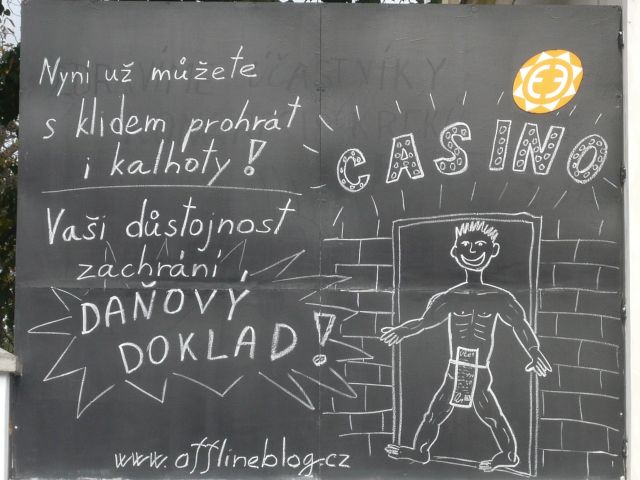 Nyní už můžete
s klidem prohrát
i kalhoty!
Vaši důstojnost
zachrání
DAŇOVÝ
DOKLAD!
www.offlineblog.cz
CASINO